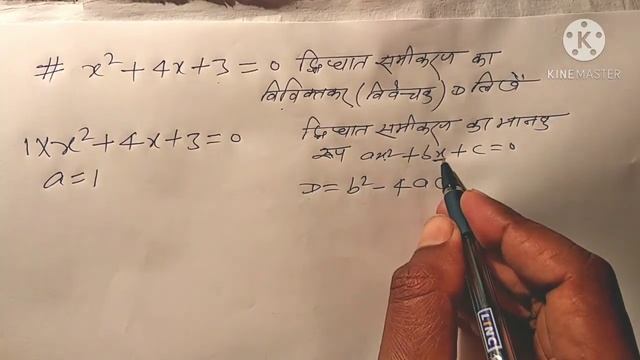 # x² + 4x + 3 = 0 द्विघात समीकरण का
विविक्तकर (विवेचक) D लिखें
1×x² + 4x + 3 = 0
a = 1
द्विघात समीकरण का मानक
रूप ax² + bx + c = 0
D = b² - 4ac
KINEMASTER
LINC